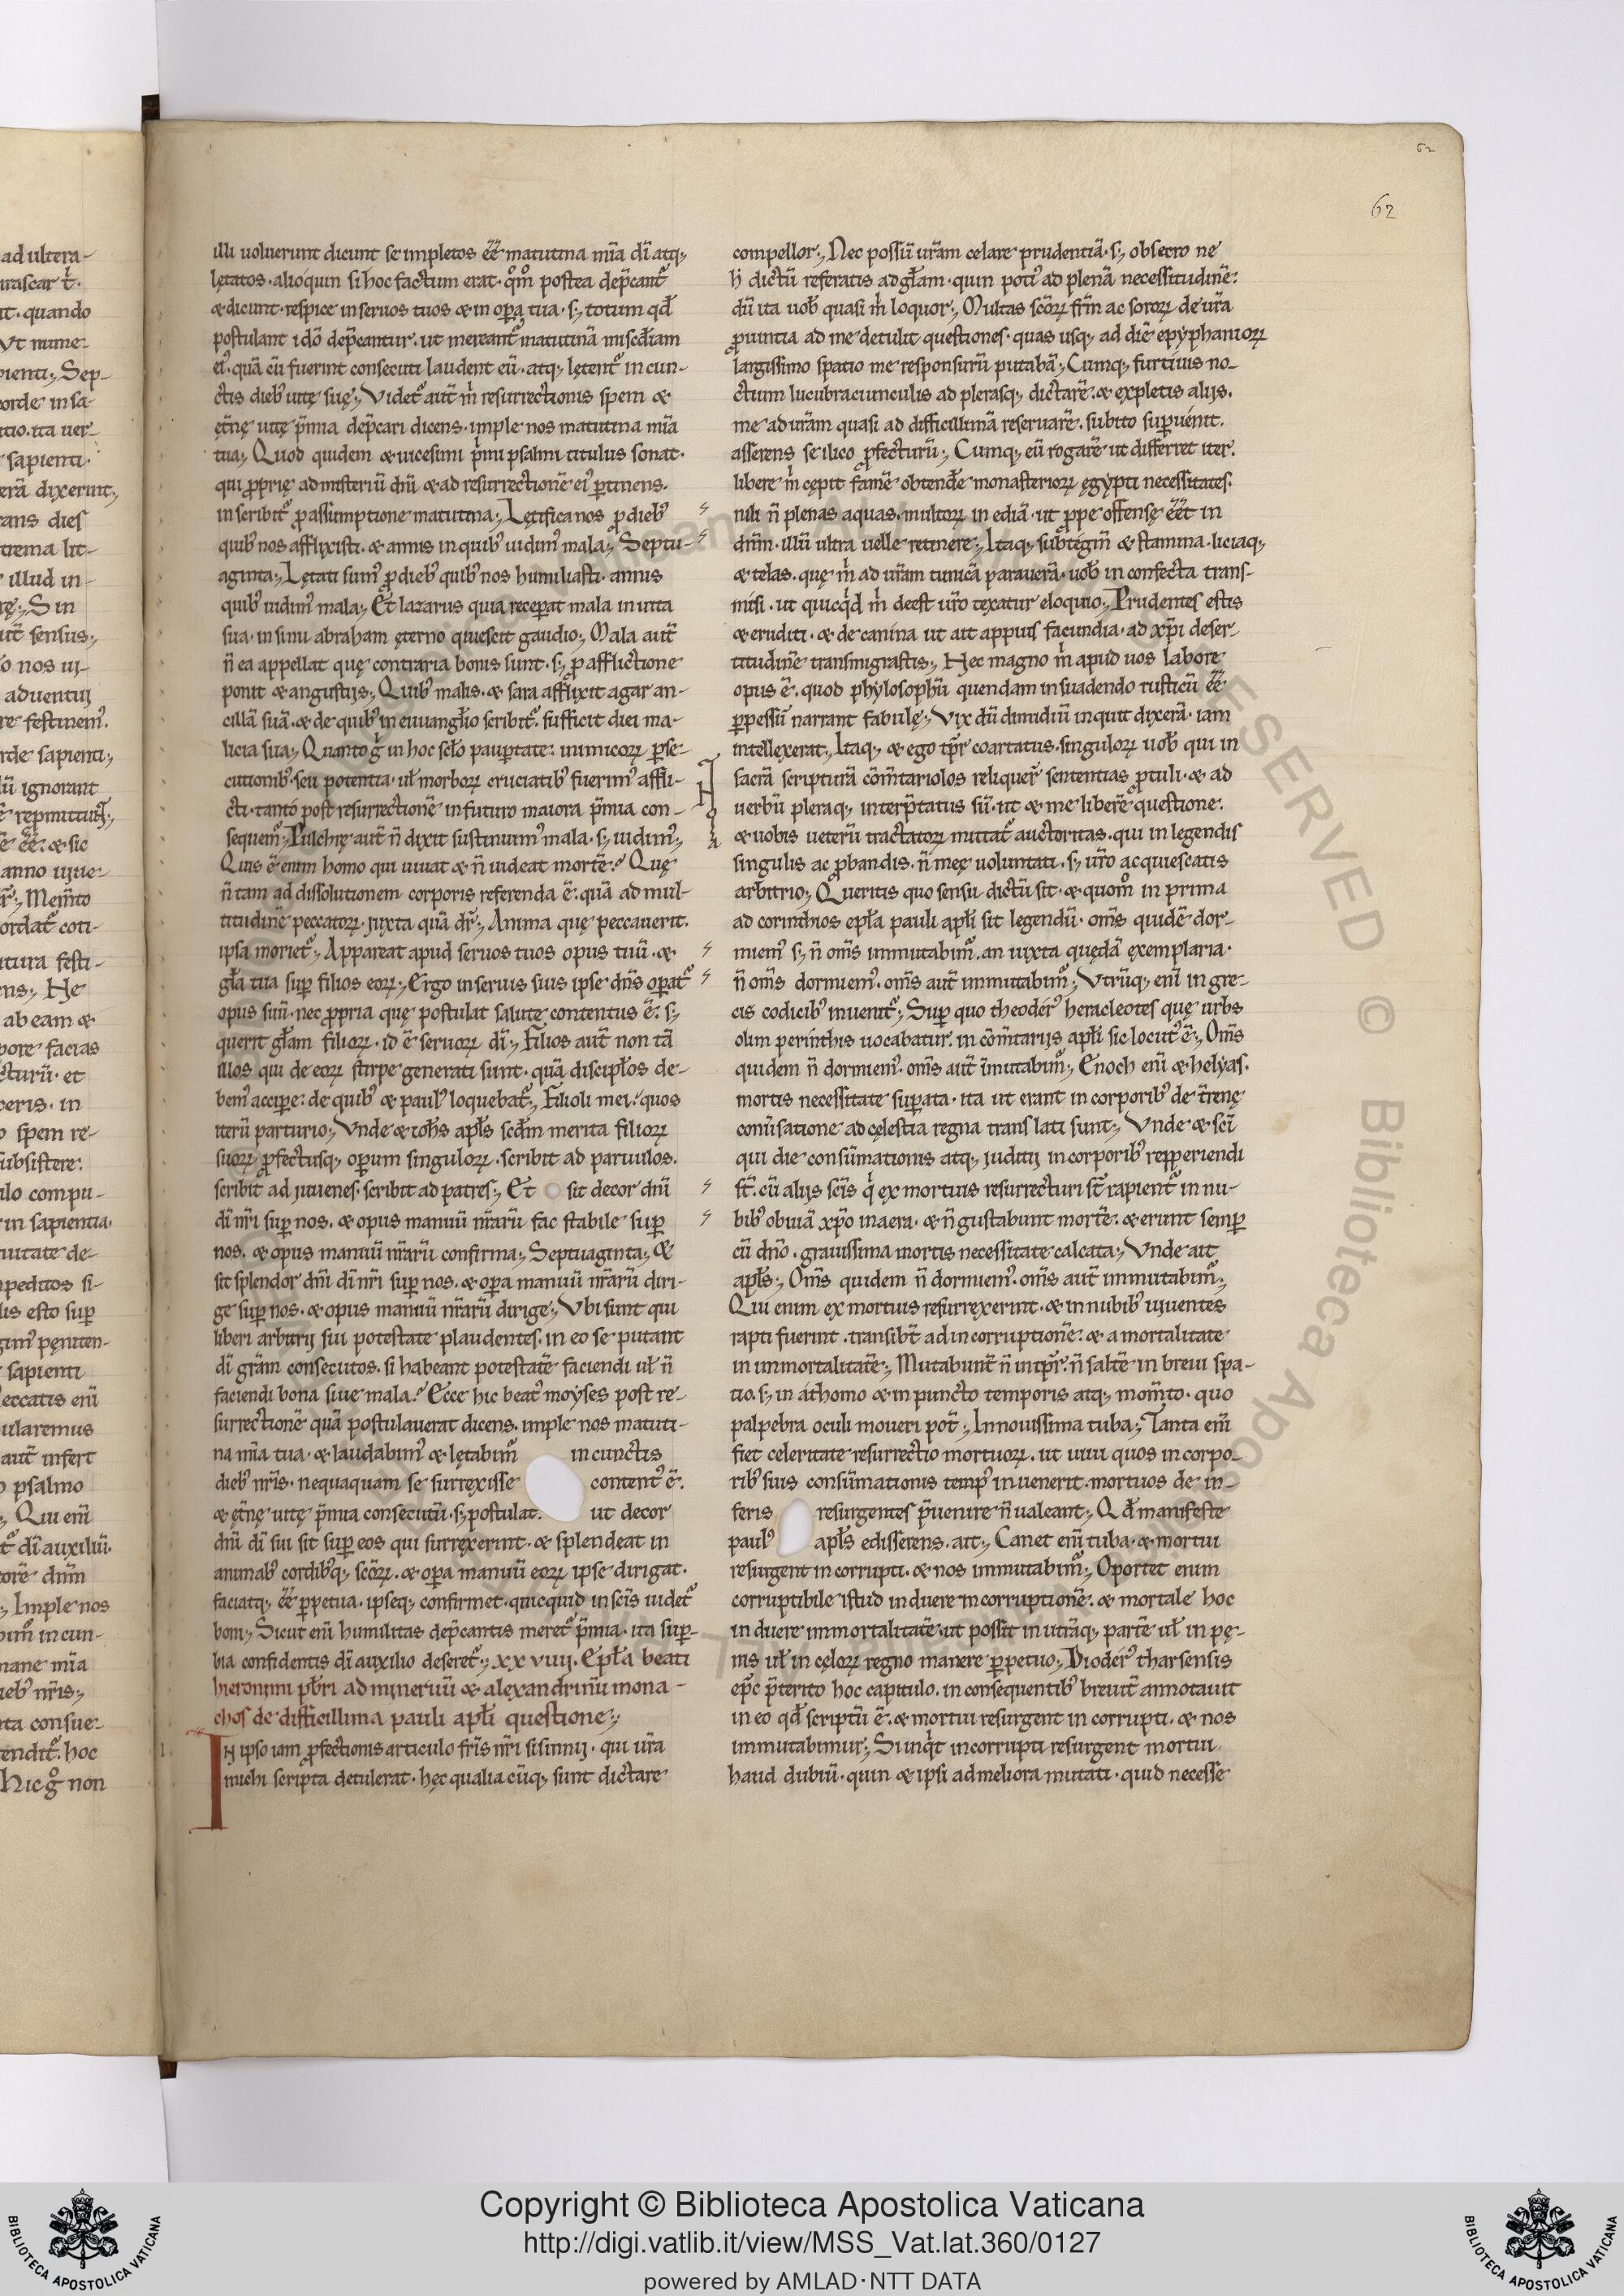 62
62
illi uoluerunt dicunt se impletos ēē matutina mīa dī atq;
lętatos. alioquin si hoc factum erat. qm̊o postea dep̄cant᷑
& dicunt. respice in seruos tuos & in oꝑa tua. s; totum qđ
postulant idō dep̄cantur. ut mereant᷑ matutinā misc̄diam
ei'. quā cū fuerint consecuti laudent eū. atq; lętent᷑ in cun-
ctis dieb' uitę suę; Videt᷑ aut̄ m̍ resurrectionis spem &
ęt̄nę uitę p̄mia dep̄cari dicens. imple nos matutina mīa
tua; Quod quidem & uicesimi p̍mi psalmi titulus sonat.
qui ꝓprię ad misteriū dn̄i & ad resurrectionē ei' ꝑtinens.
inscribit᷑ ꝓ assumptione matutina; Lętifica nos ꝓ dieb'
quib' nos afflixisti. & annis in quib' uidim' mala; Septu-
aginta; Lętati sum' ꝓ dieb' quib' nos humiliasti. annis
quib' uidim' mala; Et lazarus quia receꝑat mala in uita
sua. in sinu abraham ęterno quiescit gaudio; Mala aut̄
n̄ ea appellat quę contraria bonis sunt. s; ꝓ afflictione
ponit & angustijs; Quib' malis. & sara afflixit agar an-
cillā suā. & de quib' in euuangł̄io scribit᷑. sufficit diei ma-
licia sua; Quanto g̊ in hoc scł̄o pauꝑtate: inimicoꝝ ꝑse-
cutionib'. seu potentia. uł morboꝝ cruciatib' fuerim' affli-
cti. tanto post resurrectionē in futuro maiora p̄mia con-
sequem᷑; Pulchrę aut̄ n̄ dixit sustinuim' mala. s; uidim';
Quis ē enim homo qui uiuat & n̄ uideat mortē? Quę
n̄ tam ad dissolutionem corporis referenda ē. quā ad mul-
titudinē peccatoꝝ. juxta quā dr̄; Anima quę peccauerit.
ipsa moriet᷑; Appareat apud seruos tuos opus tuū. &
gła tua suꝑ filios eoꝝ; Ergo in seruis suis ipse dn̄s oꝑat᷑
opus suū. nec ꝓpria quę postulat salute contentus ē. s;
querit głam filioꝝ. id ē seruoꝝ dī; Filios aut̄ non tā
illos qui de eoꝝ stirpe generati sunt. quā discipłos de-
bem' acciꝑe: de quib' & paul' loquebat᷑; Filioli mei. quos
iterū parturio; Vnde & ioh̄s apłs scđm merita filioꝝ
suoꝝ ꝓfectusq; oꝑum singuloꝝ. scribit ad paruulos.
scribit ad juuenes. scribit ad patres; Et sit decor dn̄i
dī nr̄i suꝑ nos. & opus manuū nr̄arū fac stabile suꝑ
nos. & opus manuū nr̄arū confirma; Septuaginta; &
sit splendor dn̄i dī nr̄i suꝑ nos. & oꝑa manuū nr̄arū diri-
ge suꝑ nos. & opus manuū nr̄arū dirige; Vbi sunt qui
liberi arbitrij sui potestate plaudentes. in eo se putant
dī grām consecutos. si habeant potestatē faciendi uł n̄
faciendi bona siue mala? Ecce hic beat' moyses post re-
surrectionē quā postulauerat dicens. imple nos matuti-
na mīa tua. & laudabim' & lętabim᷑ in cunctis
dieb' nr̄is. nequaquam se surrexisse content' ē.
& ęt̄nę uitę p̄mia consecutū. s; postulat. ut decor
dn̄i dī sui sit suꝑ eos qui surrexerint. & splendeat in
animab' cordibq; scōꝝ. & oꝑa manuū eoꝝ ipse dirigat.
faciatq; ēē ꝑpetua. ipseq; confirmet. quicquid in scīs uidet᷑
boni; Sicut enī humilitas dep̄cantis meret᷑ p̄mia. ita suꝑ-
bia confidentis dī auxilio deseret᷑; xxviiij. Epła beati
hieronimi pb̄ri ad mineruū & alexandrinū mona-
chos de difficillima pauli apłi questione;
IN ipso iam ꝓfectionis articulo fr̄is nr̄i sisinnij. qui ur̄a
michi scripta detulerat. hęc qualia cūq; sunt dictare
compellor; Nec possū ur̄am celare prudentiā. s; obsecro ne
h̍ dictū referatis ad głam. quin poti' ad plenā necessitudinē:
dū ita uob̄ quasi m̍ loquor; Multas scōꝝ fr̄m ac soroꝝ de ur̄a
ꝓuintia ad me detulit questiones. quas usq; ad diē epyphanioꝝ
largissimo spatio me responsurū putabā; Cumq; furtiuis no-
ctium lucubraciunculis ad plerasq; dictarē. & expletis alijs.
me ad ur̄am quasi ad difficillimā reseruarē. subito suꝑuenit.
asserens se ilico ꝓfecturū; Cumq; eū rogarē ut differret iter.
libere m̍ cępit famē obtendēe monasterioꝝ ęgypti necessitates:
nili n̄ plenas aquas. multoꝝ inediā. ut ꝓpe offensę ēēt in
dn̄m. illū ultra uelle retinere; Itaq; subtegm̄ & stamina. liciaq;
& telas. quę m̍ ad ur̄am tunicā paraueră. uob̄ inconfecta trans-
misi. ut quicqd m̍ deest ur̄o texatur eloquio; Prudentes estis
& eruditi. & de canina ut ait appius facundia. ad xp̄i deser-
titudinē transmigrastis; Nec magno m̍ apud uos labore
opus ē. quod phylosophū quendam in suadendo rusticū ēē
ꝑpessū narrant fabulę; Vix dū dimidiū inquit dixerā. iam
intellexerat; Itaq; & ego tp̄r coartatus. singuloꝝ uob̄ qui in
sacrā scripturā cōm̄tariolos reliquer̄ sententias ꝓtuli. & ad
uerbū pleraq; interp̄tatus sū. ut & me liberē questione.
& uobis ueterū tractatoꝝ mittat᷑ auctoritas. qui in legendis
singulis ac ꝓbandis. n̄ meę uoluntati. s; ur̄o acquiescatis
arbitrio; Queritis quo sensu dictū sit. & quom̊o in prima
ad corinthios epła pauli apłi sit legendū. om̄s quidē dor-
miem' s; n̄ om̄s immutabim᷑. an iuxta quędā exemplaria.
n̄ om̄s dormiem'. om̄s aut̄ immutabim᷑; Vtrūq; enī in gre-
cis codicib' inuenit᷑; Suꝑ quo theoder' heracleotes quę urbs
olim perinthis uocabatur. in cōm̄tarijs apłi sic locut' ē; Om̄s
quidem n̄ dormiem'. om̄s aut̄ īmutabim᷑; Enoch enī & helyas.
mortis necessitate suꝑata. ita ut erant in corporib' de t̄renę
conū̄satione ad cęlestia regna translati sunt; Vnde & scī
qui die consūmationis atq; juditij in corporib' reꝑperiendi
st̄. cū alijs scīs q̍ ex mortuis resurrecturi st̄ rapient᷑ in nu-
bib' obuiā xp̄o in aera. & n̄ gustabunt mortē. & erunt semꝑ
cū dn̄o. grauissima mortis necessitate calcata; Vnde ait
apłs; Om̄s quidem n̄ dormiem'. om̄s aut̄ immutabim᷑;
Qui enim ex mortuis resurrexerint. & in nubib' ujuentes
rapti fuerint. transibt̄ ad incorruptionē: & a mortalitate
in immortalitatē; Mutabunt̄ n̄ intp̄r. n̄ saltē in breui spa-
tio. s; in áthomo & in puncto temporis atq; mom̄to. quo
palpebra oculi moueri pot̄; In nouissima tuba; Tanta enī
fiet celeritate resurrectio mortuoꝝ. ut uiui quos in corpo-
rib' suis consūmationis temp' inuenerit. mortuos de in-
feris resurgentes p̄uenire n̄ ualeant; Qđ manifeste
paul' apłs edisserens. ait; Canet enī tuba. & mortui
resurgent incorrupti. & nos immutabim᷑; Oportet enim
corruptibile istud induere incorruptionē. & mortale hoc
induere immortalitatē. ut possit in utrāq; partē uł in pę-
nis uł in cęloꝝ regno manere ꝑpetuo; Dioder' tharsensis
ep̄c p̄terito hoc capitulo. in consequentib' breuit̄ annotauit
in eo qđ scriptū ē. & mortui resurgent incorrupti. & nos
immutabimur; Si inq̍t incorrupti resurgent mortui
haud dubiū. quin & ipsi ad meliora mutati. quid necesse
Copyright © Biblioteca Apostolica Vaticana
http://digi.vatlib.it/view/MSS_Vat.lat.360/0127
powered by AMLAD·NTT DATA
BIBLIOTECA APOSTOLICA VATICANA
BIBLIOTECA APOSTOLICA VATICANA